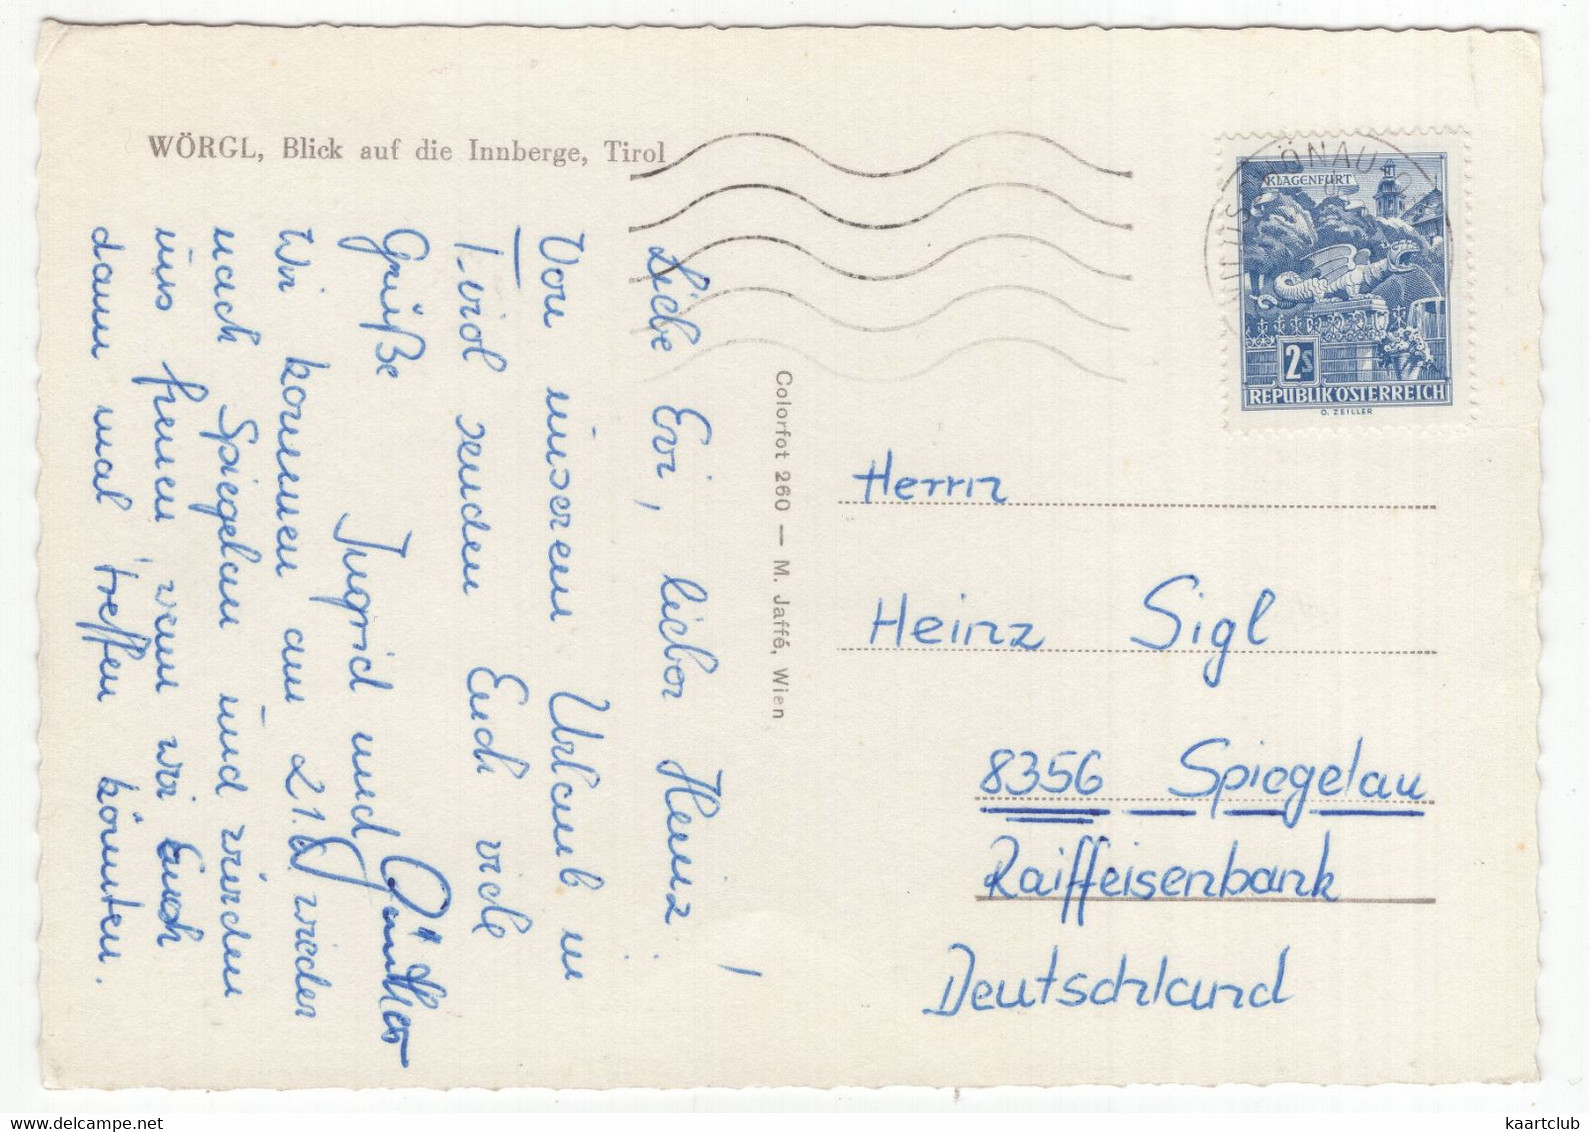 WÖRGL, Blick auf die Innberge, Tirol
Liebe Evi, lieber Heinz!
Von unserem Urlaub in
Tirol senden Euch viele
Grüße
Ingrid und Günther
Wir kommen am 21. wieder
nach Spiegelau und würden
uns freuen wenn wir Euch
dann mal treffen könnten.
Colorfot 260 — M. Jaffé, Wien
KLAGENFURT
2S
REPUBLIK ÖSTERREICH
O. ZEILLER
Herrn
Heinz Sigl
8356 Spiegelau
Raiffeisenbank
Deutschland
www.delcampe.net
kaartclub